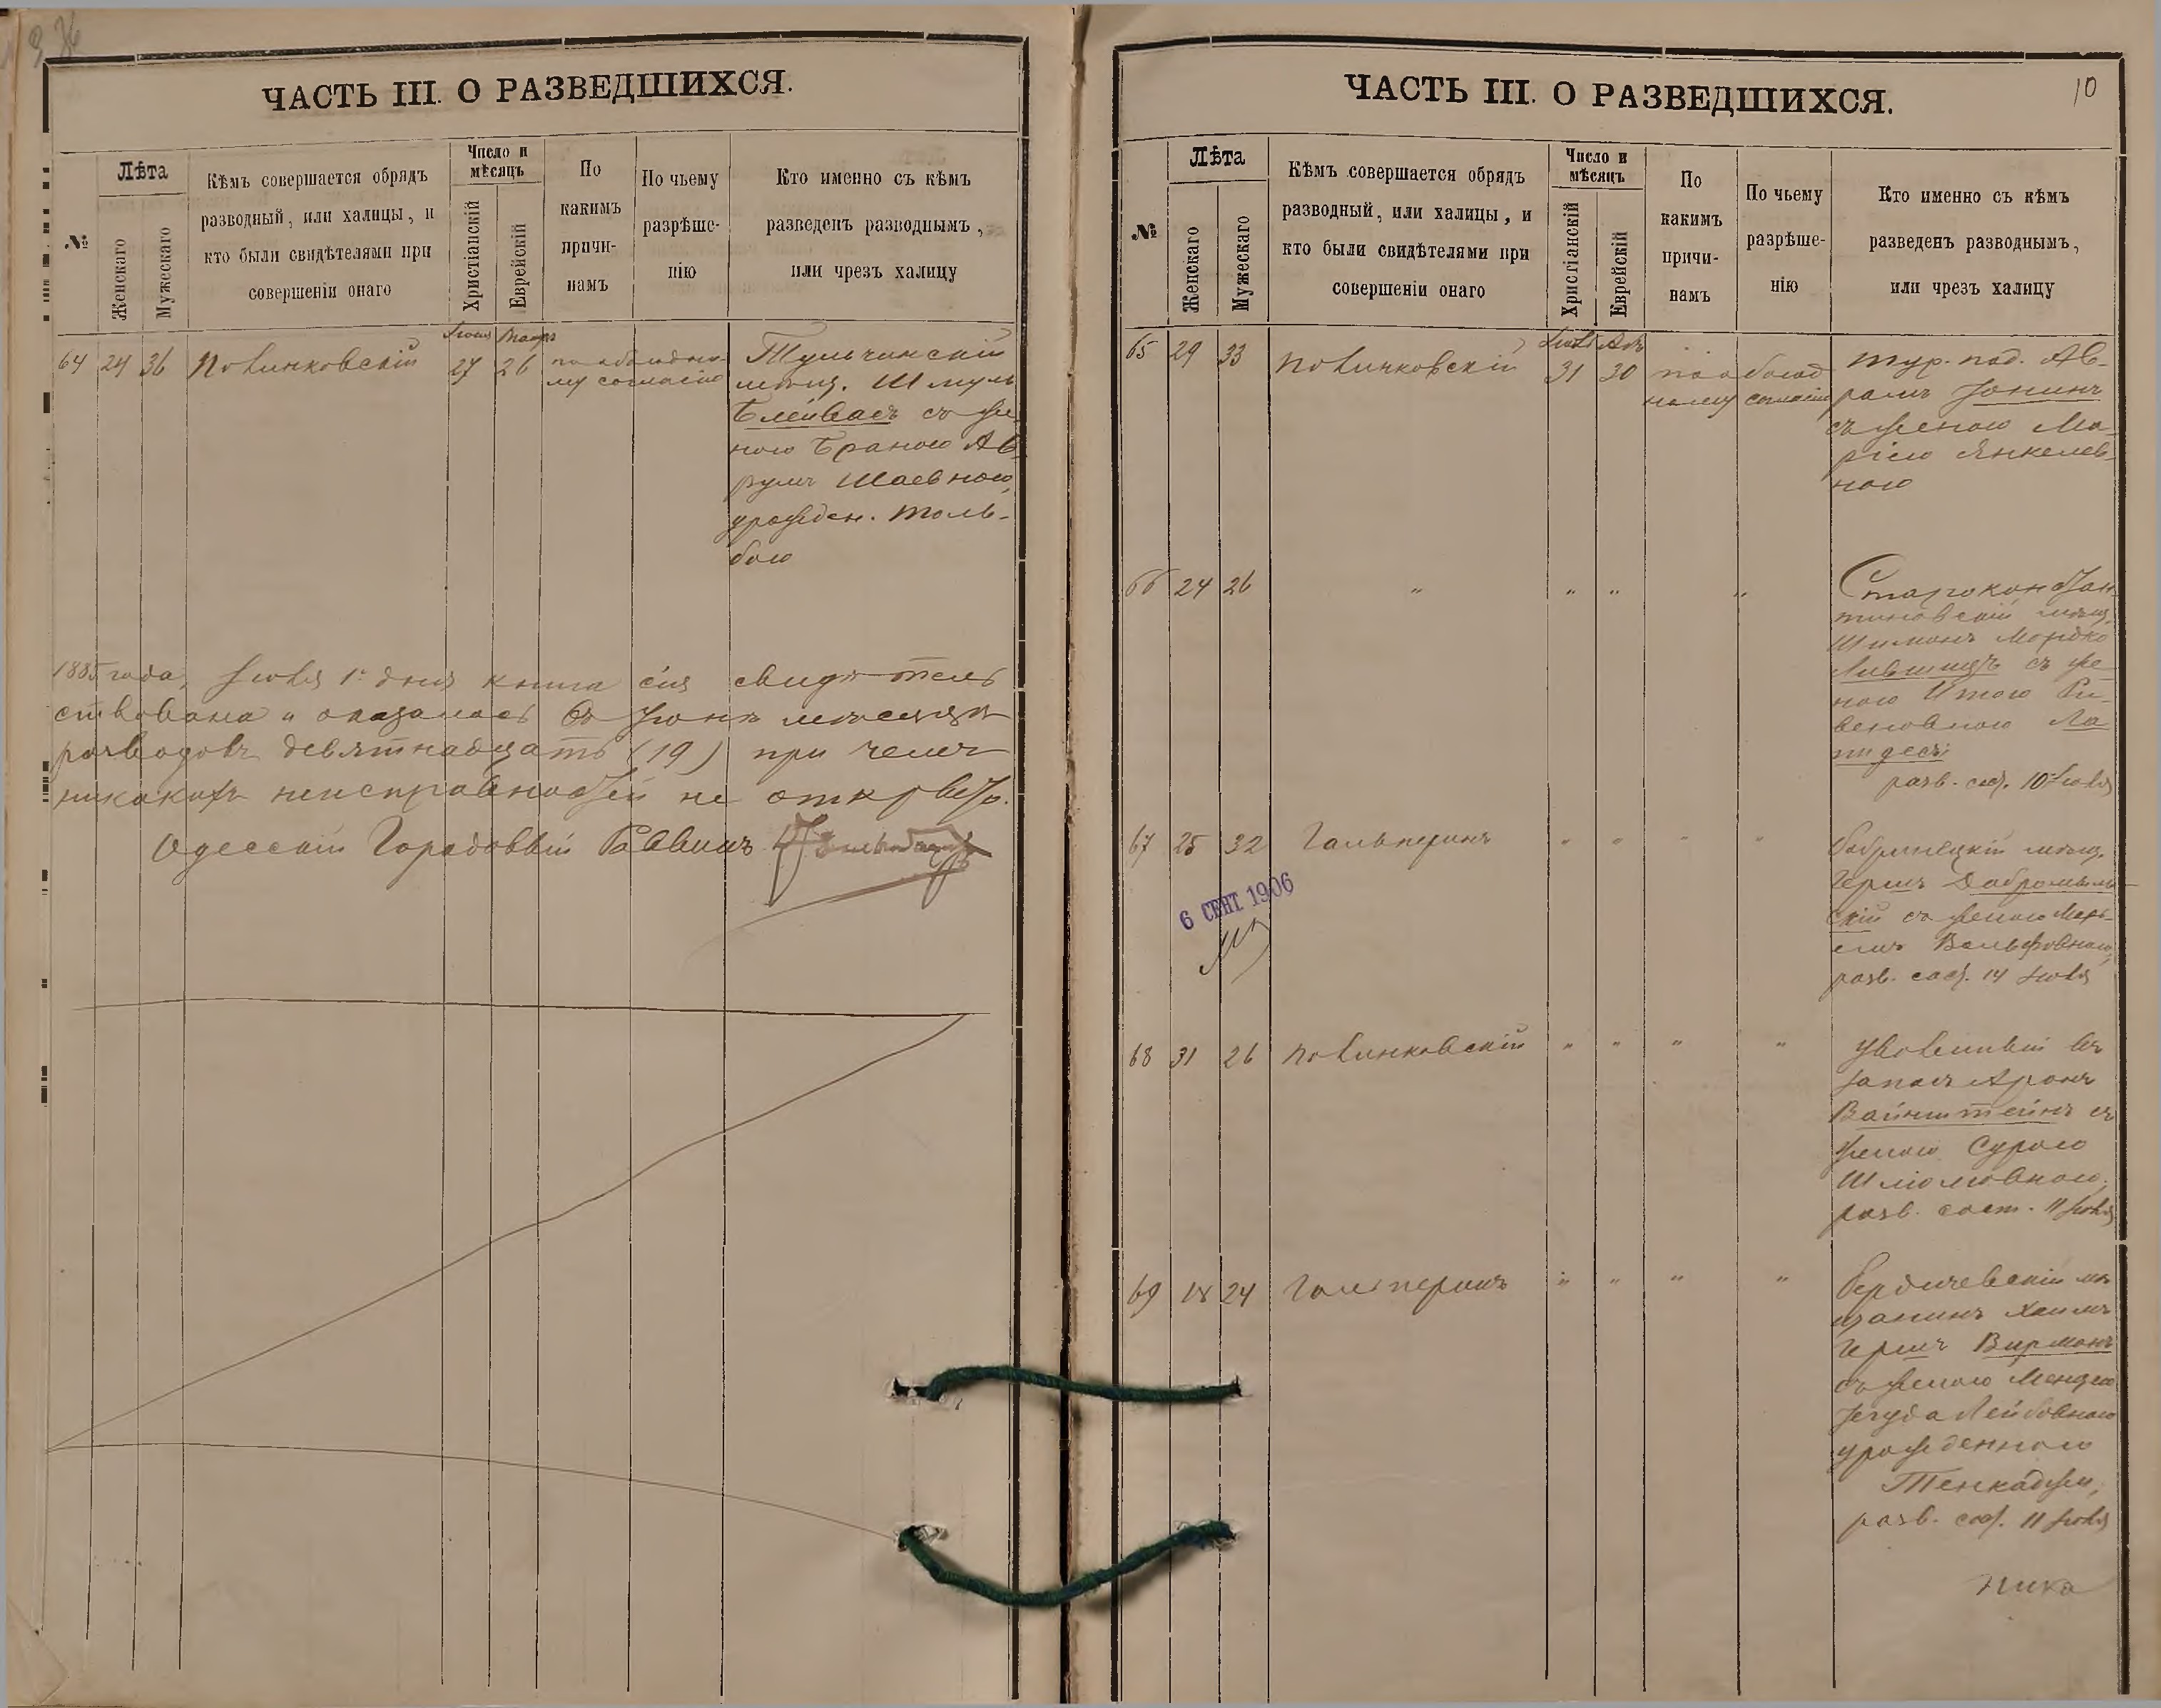 ЧАСТЬ III. О РАЗВЕДШИХСЯ.
№
Лѣта
Женскаго
Мужескаго
Кѣмъ совершается обрядъ
разводный, или халицы, и
кто были свидѣтелями при
совершеніи онаго
Число и
мѣсяцъ
Христіанскій
Еврейскій
По
какимъ
причи-
намъ
По чьему
разрѣше-
нію
Кто именно съ кѣмъ
разведенъ разводнымъ,
или чрезъ халицу
64 24 36 27 26
му согласію
Тульчинскій
мѣщ. Шмуль
Блейвасъ съ же-
ною Браною Ав-
румъ Шаевною,
урожден. Толь-
бою
1885 года, Іюля 1 дня книга сія свидѣтель
ствована и оказалось въ Іюнѣ мѣсяцѣ
разводовъ девятнадцать (19) при чемъ
никакихъ неисправностей не открыто.
Одесскій Городовый Раввинъ
ЧАСТЬ III. О РАЗВЕДШИХСЯ.
10
№
Лѣта
Женскаго
Мужескаго
Кѣмъ совершается обрядъ
разводный, или халицы, и
кто были свидѣтелями при
совершеніи онаго
Число и
мѣсяцъ
Христіанскій
Еврейскій
По
какимъ
причи-
намъ
По чьему
разрѣше-
нію
Кто именно съ кѣмъ
разведенъ разводнымъ,
или чрезъ халицу
65 29 33 31 30
тур. под. Ав-
рамъ Іонинъ
съ женою Ма-
ріею Янкелев-
ною
66 24 26 " " " "
Староконстан-
тиновскій мѣщ.
Шимонъ Мордко
Лившицъ съ же-
ною Итою Ру-
веновною Ла-
пидесъ
разв. сост. 10 Іюля
67 25 32 Гальперинъ " " " "
6 СЕНТ 1906
Бобринецкій мѣщ.
Гершъ Добромыль
скій съ женою
Вольфовною,
разв. сост. 14 Іюля
68 31 26 " " " "
Уволенный въ
запасъ Аронъ
Вайнштейнъ съ
женою Сурою
Шліомовною,
разв. сост. 11 Іюля
69 18 24 Гальперинъ " " " "
Бердичевскій мѣ
щанинъ Хаимъ
Гершъ Вирманъ
съ женою
Лейбовною
урожденною
разв. сост. 11 Іюля